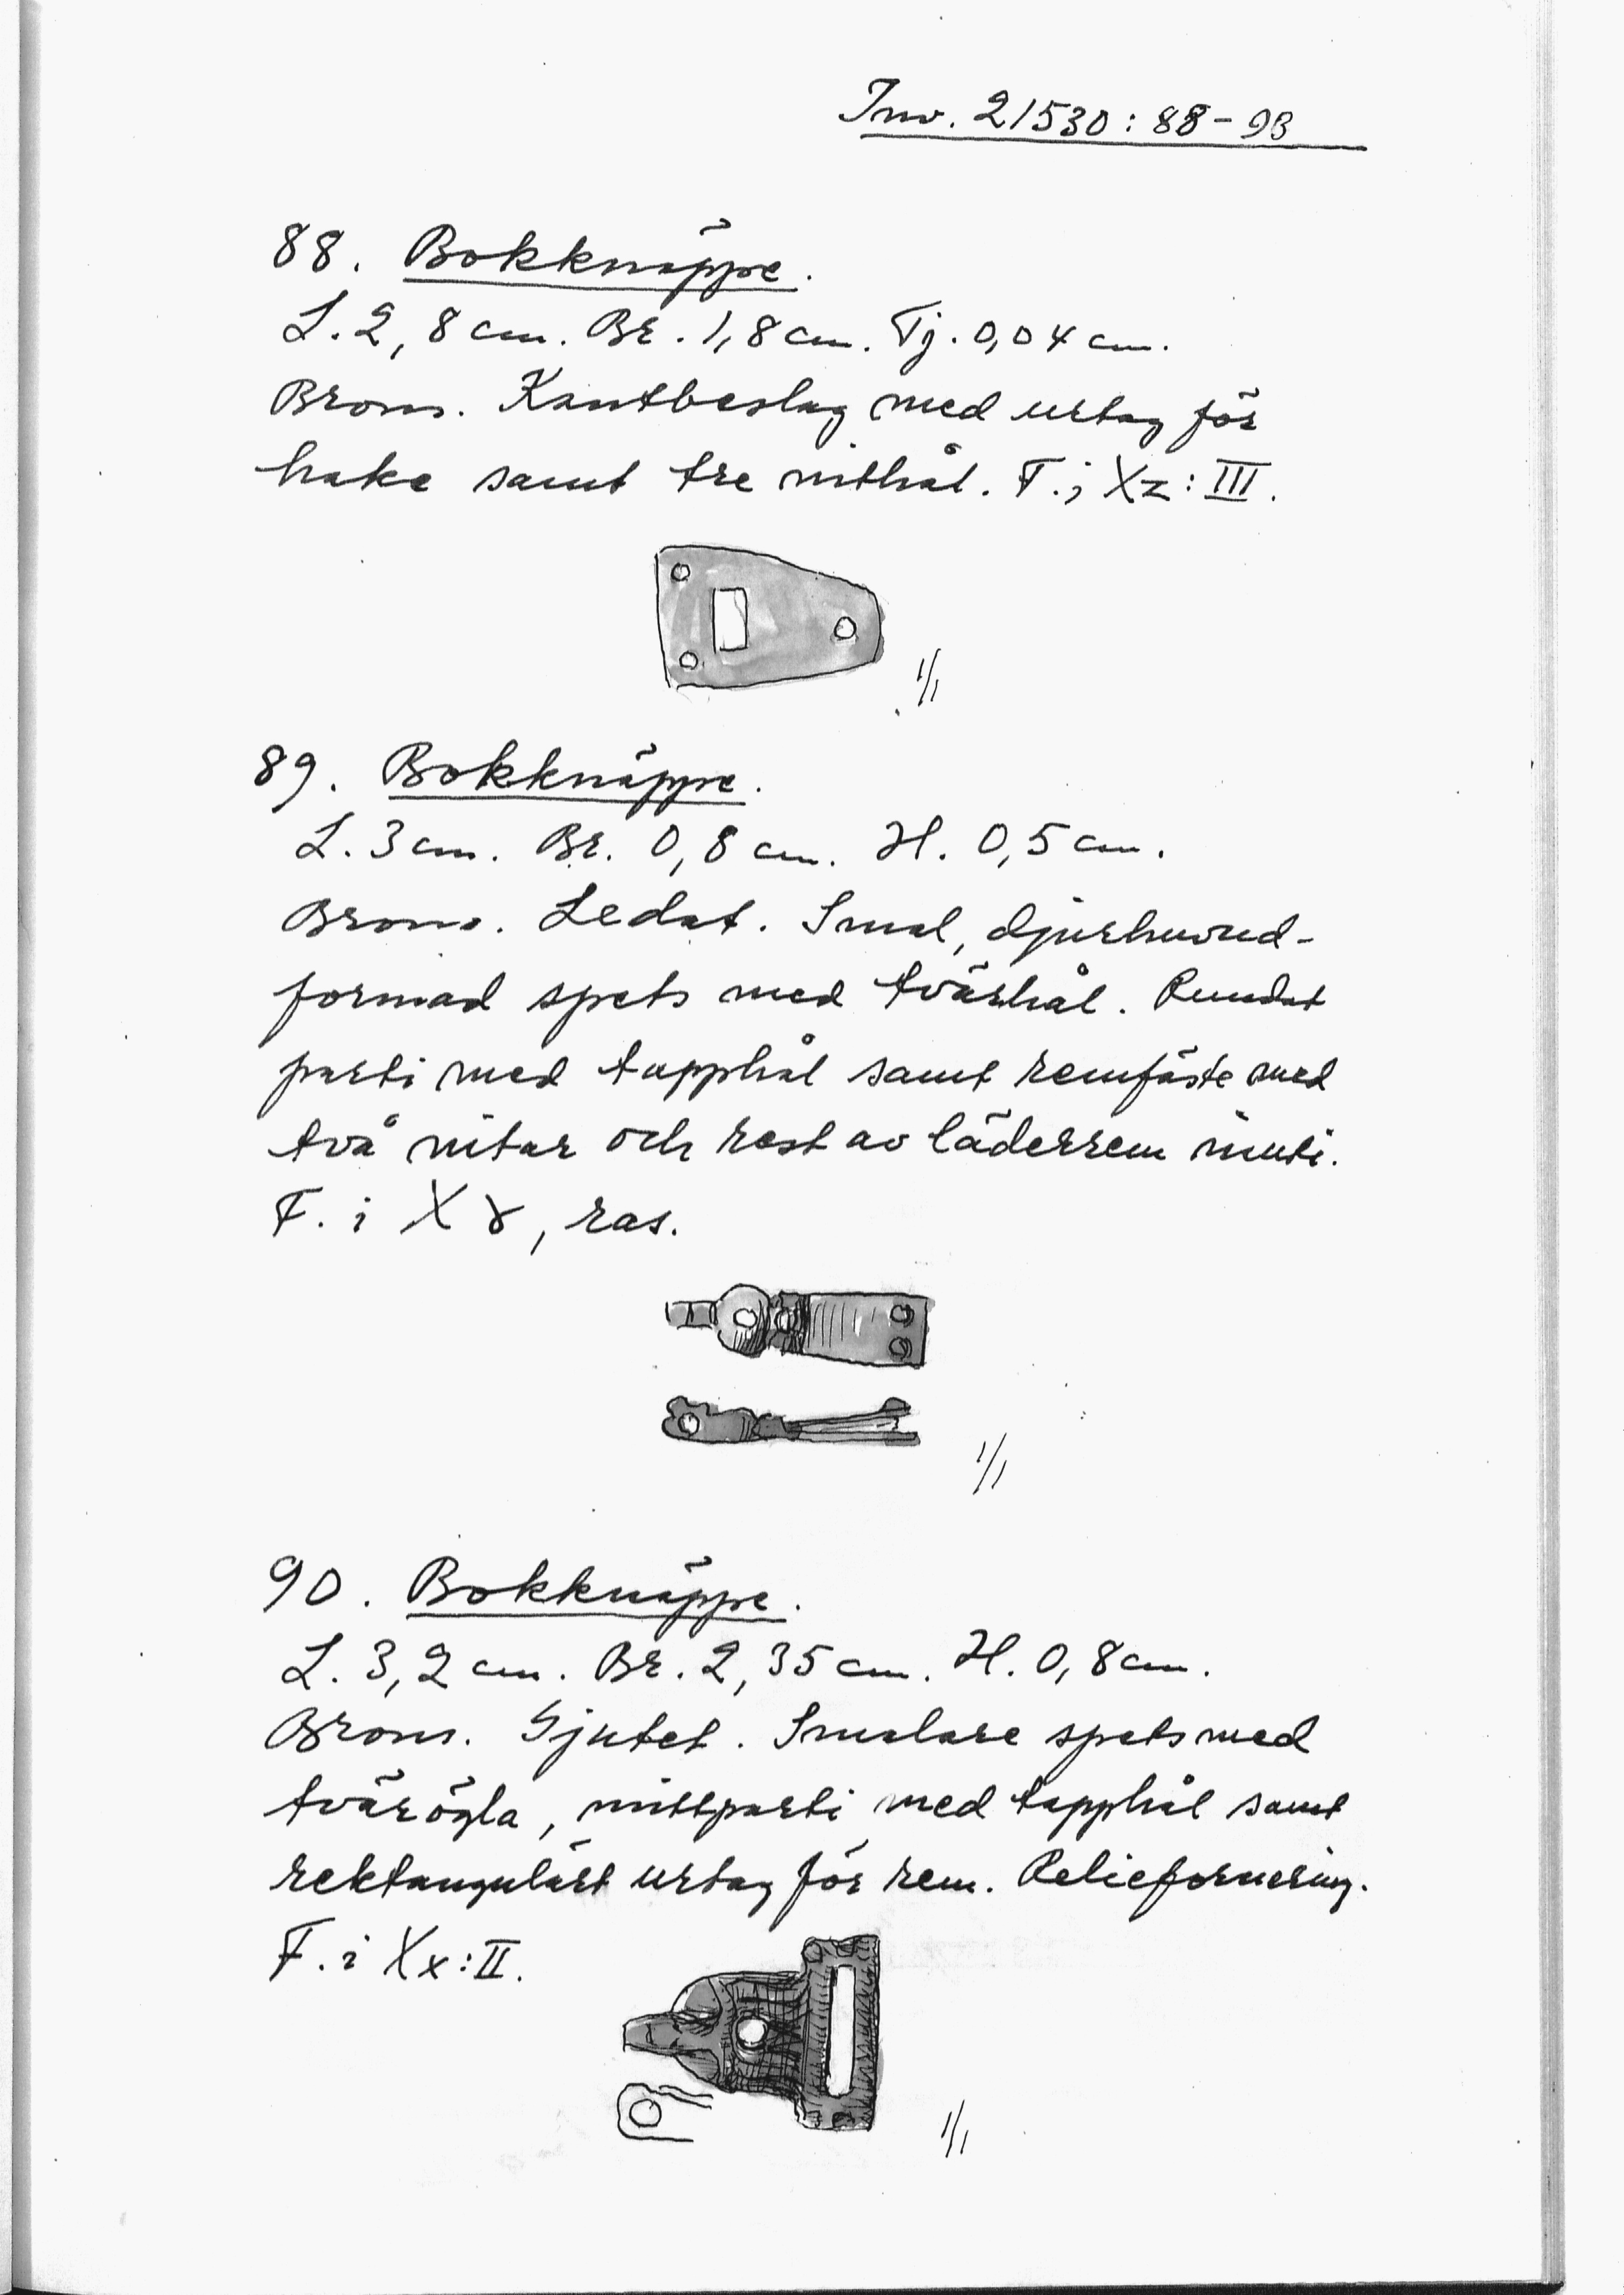 Inv. 21530: 88-93
88. Bokknäppe.
L. 2,8 cm. Br. 1,8 cm. Tj. 0,04 cm.
Brons. Kantbeslag med urtag för
hake samt tre nithål. F. i Xz: III.
1/1
89. Bokknäppe.
L. 3 cm. Br. 0,8 cm. H. 0,5 cm.
Brons. Ledat. Smal, djurhuvud-
formad spets med tvärhål. Rundat
parti med tapphål samt remfäste med
två nitar och rest av läderrem inuti.
F. i X γ, ras.
1/1
90. Bokknäppe.
L. 3,2 cm. Br. 2,35 cm. H. 0,8 cm.
Brons. Gjutet. Smalare spets med
tvärögla, mittparti med tapphål samt
rektangulärt urtag för rem. Reliefornering.
F. i Xx: II.
1/1